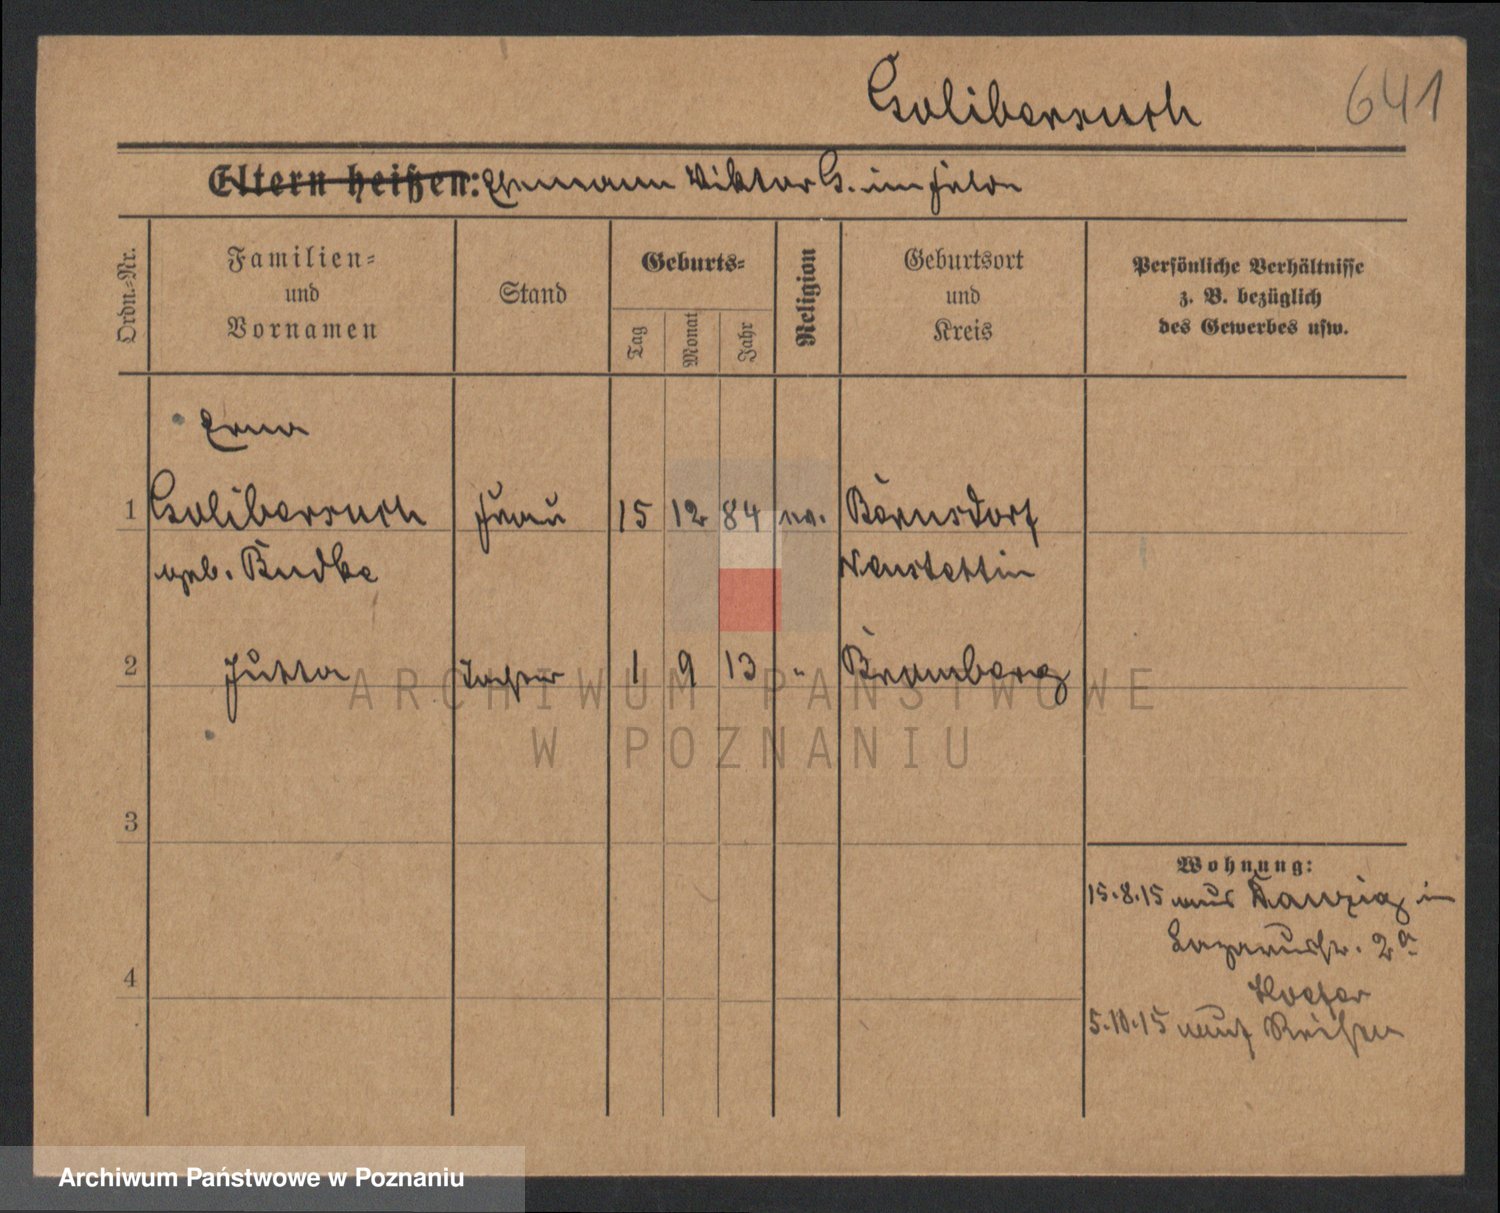 Golibersuch 641
Eltern heißen: Ehemann Viktor G. im Felde
Ordn.-Nr.
Familien- und Vornamen
Stand
Geburts-
Tag
Monat
Jahr
Religion
Geburtsort und Kreis
Persönliche Verhältnisse
z. B. bezüglich
des Gewerbes usw.
Erna
1 Golibersuch Frau 15 12 84 ev. Bärnsdorf
geb. Budke Neustettin
2 Jutta Tochter 1 9 13 " Bromberg
3
Wohnung:
15.8.15 aus Danzig in
Lazarusstr. 2a
4
Hoefer
5.10.15 auf Reisen
ARCHIWUM PAŃSTWOWE
W POZNANIU
Archiwum Państwowe w Poznaniu